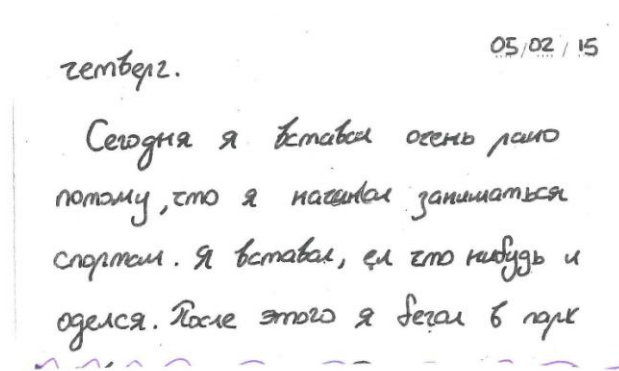 05/02/15
четверг.
Сегодня я вставал очень рано
потому, что я начинал заниматься
спортом. Я вставал, ел что нибудь и
оделся. После этого я бегал в парк